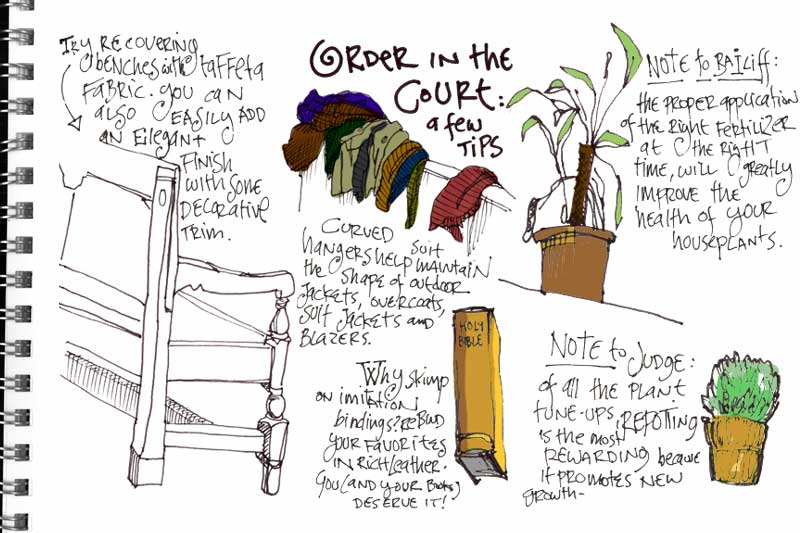 ORDER IN THE
COURT:
a few
TIPS
TRY RECOVERING
benches with taffeta
FABRIC. YOU CAN
also EASILY ADD
AN Eilegant
FINISH
WITH SOME
DECORATIVE
TRIM.
CURVED
hangers help SUIT
the MAINTAIN
Shape of outdoor
JACKETS, OVERCOATS,
SUIT JACKETS AND
BLAZERS.
NOTE to BAILIFF:
the PROPER APPLICATION
of the Right Fertilizer
at the RIGHT
time, will greatly
IMPROVE the
health of YOUR
houseplants.
HOLY
BIBLE
Why skimp
on imitation
bindings? REBIND
YOUR FAVORITES
IN RICH leather.
YOU (AND YOUR BOOKS)
DESERVE IT!
NOTE to JUDGE:
of all the plant
tune-ups, REPOTTING
is the most
REWARDING because
it PROMOTES NEW
growth-